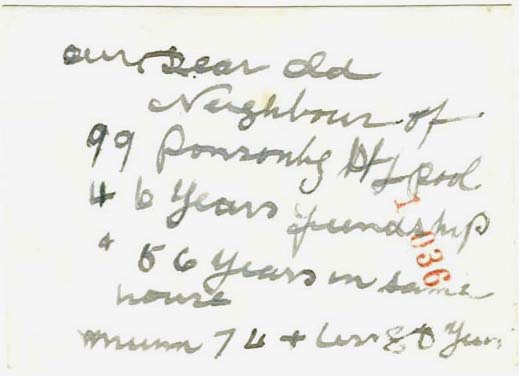 our Dear old
Neighbour of
99 Ponsonby St L pool
46 Years friendship
+ 56 years in same
house
mum 74 + Les 80 Years
1036